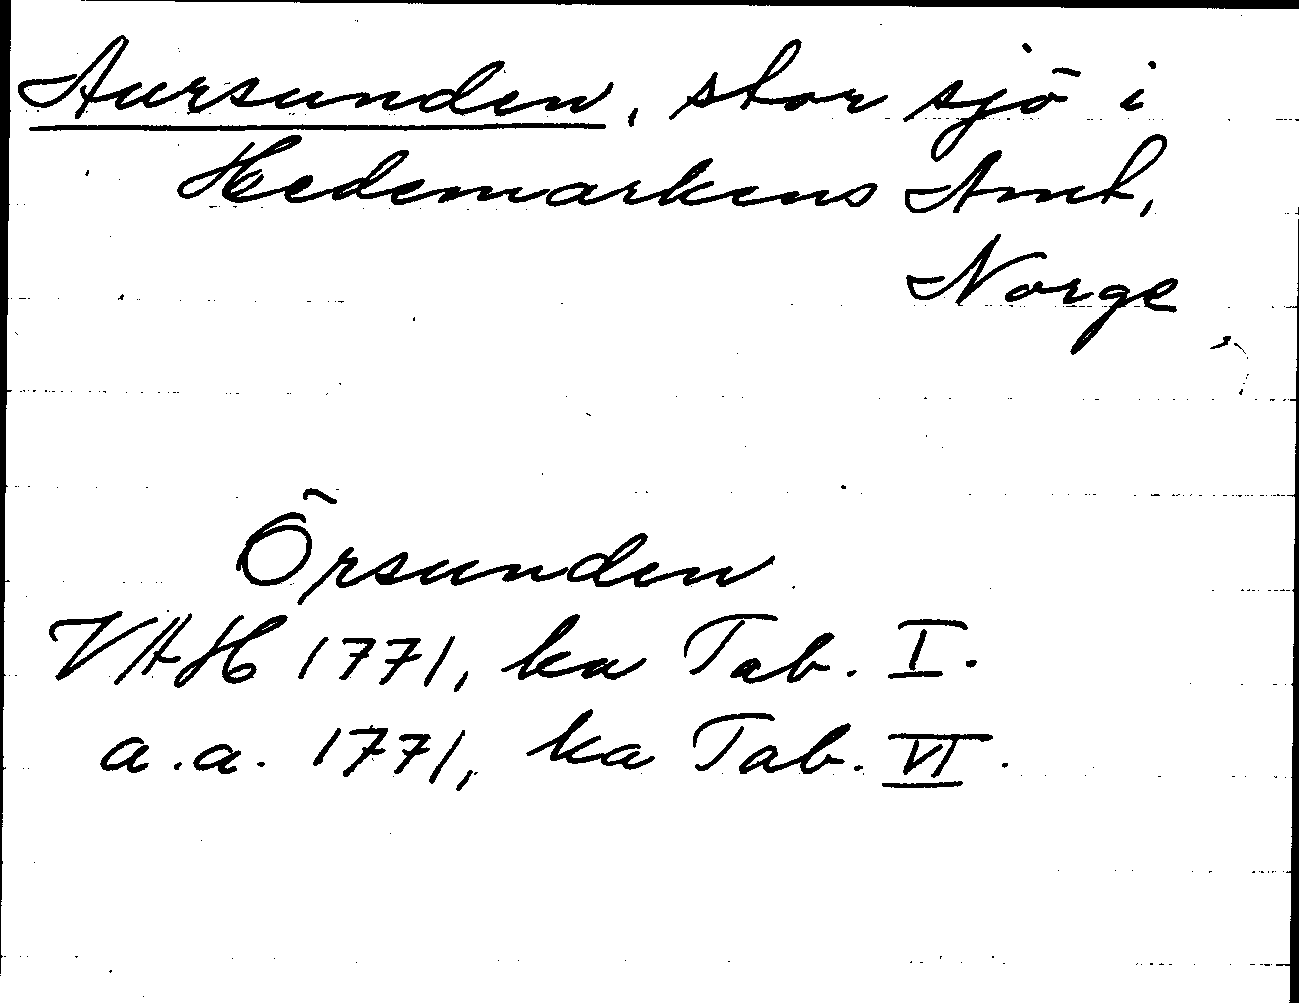 Aursunden, stor sjö i
Hedemarkens Amt,
Norge
Örsunden
VAH 1771, ka Tab. I.
a.a. 1771, ka Tab. VI.